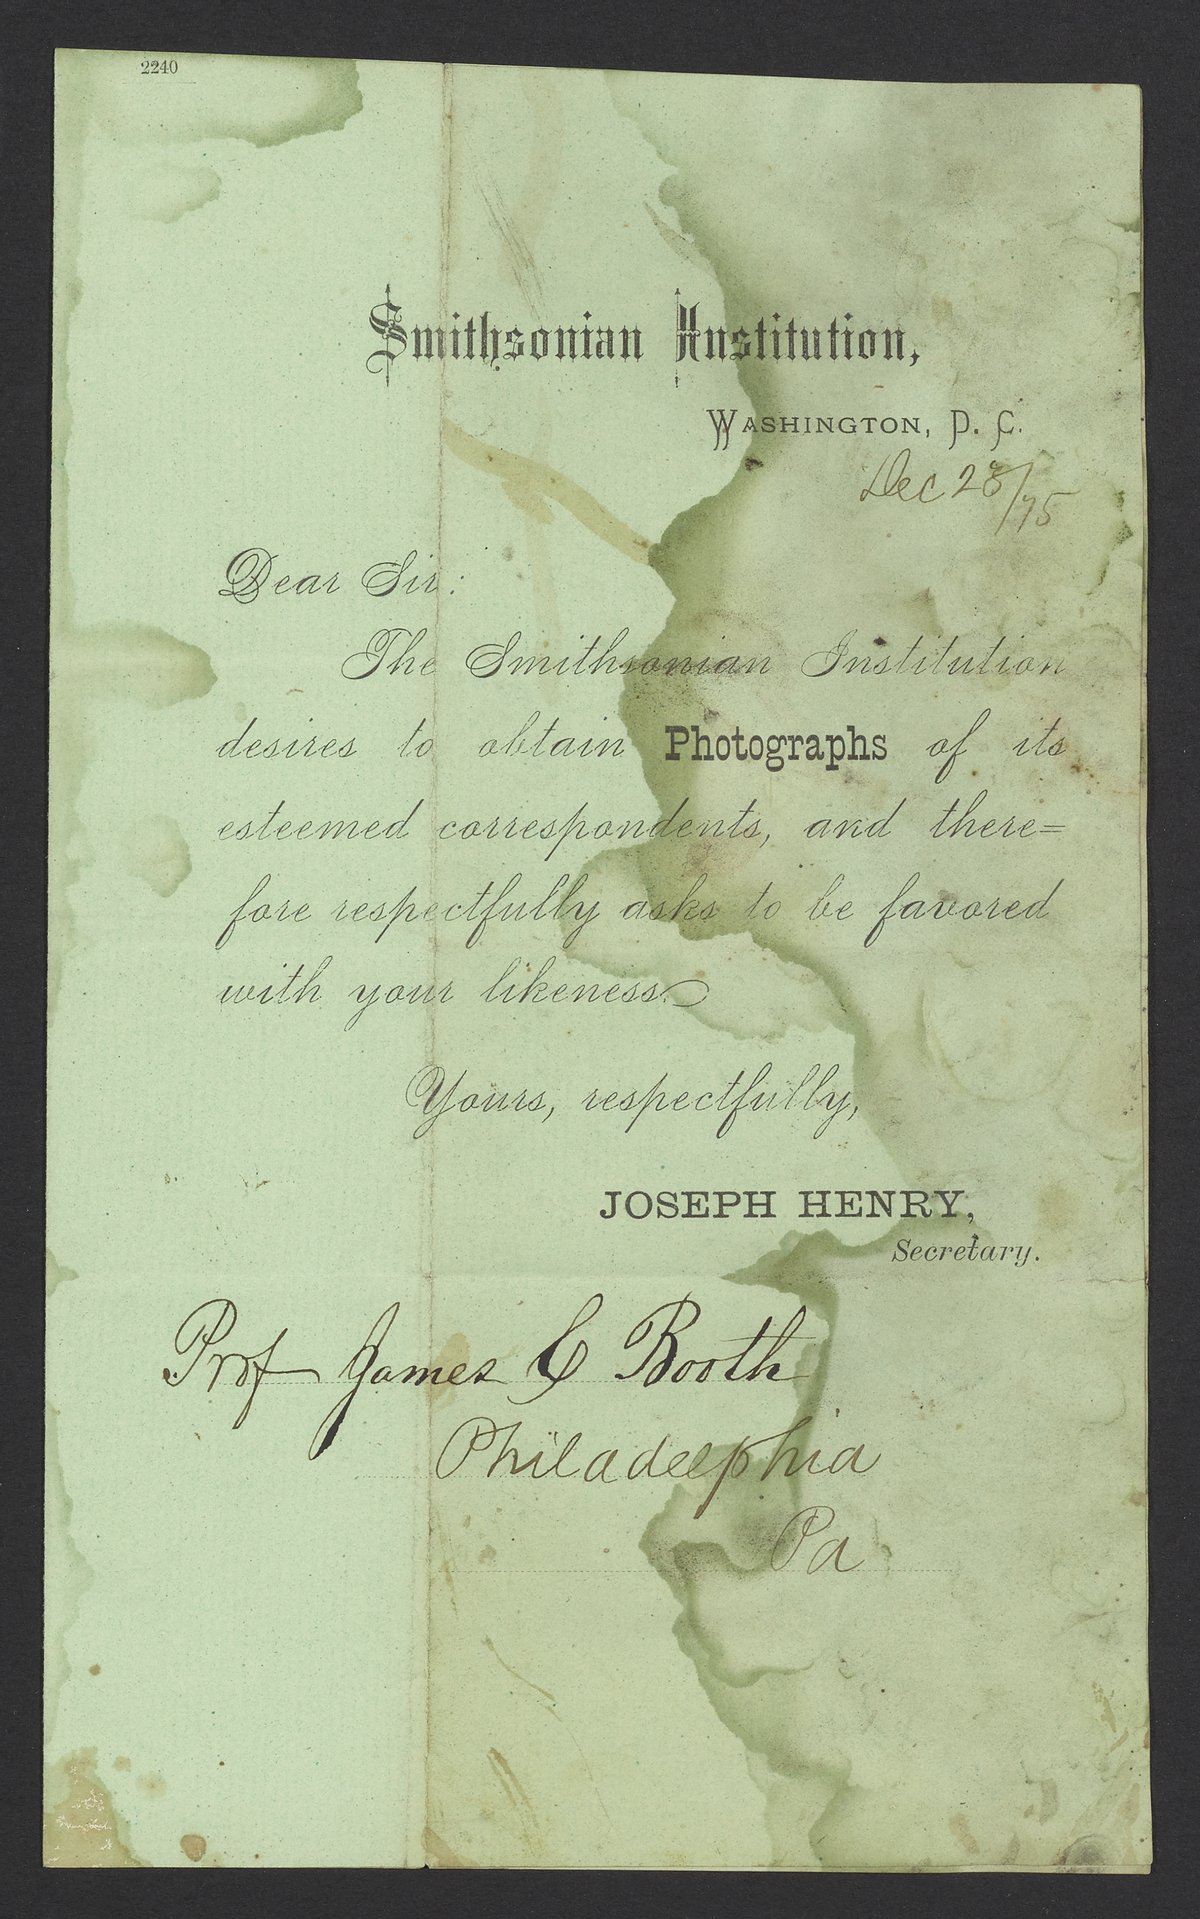 2240
Smithsonian Institution,
Washington, D. C.
Dec 28/75
Dear Sir:
The Smithsonian Institution
desires to obtain Photographs of its
esteemed correspondents, and there=
fore respectfully asks to be favored
with your likeness.
Yours, respectfully,
JOSEPH HENRY,
Secretary.
Prof James C Booth
Philadelphia
Pa